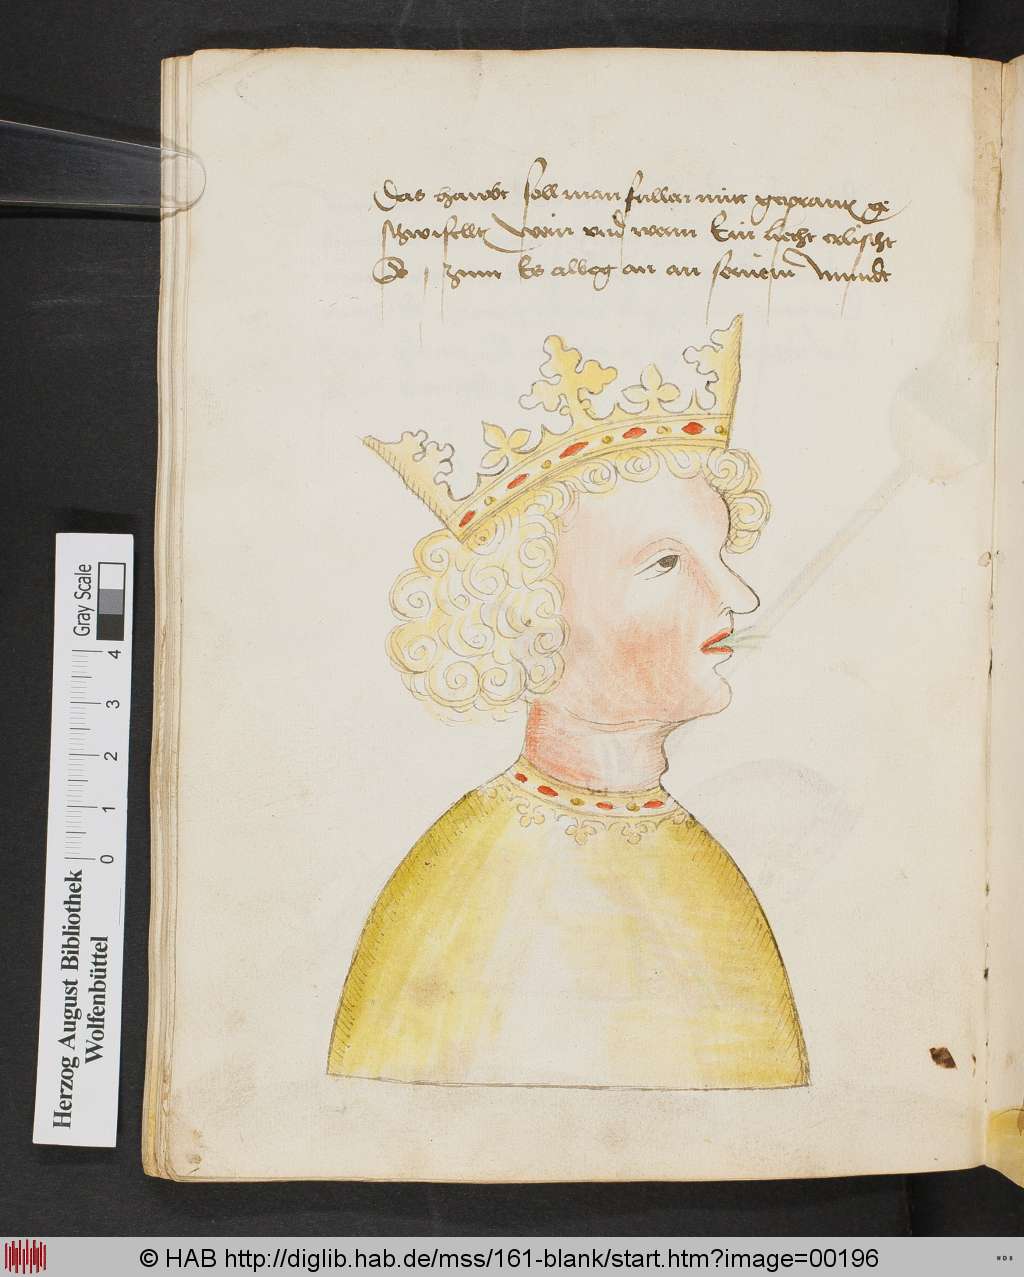 Das haubt soll man fullen mitt geprantt ge
schwefellt Wein und wenn Ein liecht erlischt
So zunt Es albeg an an seinem mundt
Gray Scale
0 1 2 3 4
Herzog August Bibliothek
Wolfenbüttel
© HAB http://diglib.hab.de/mss/161-blank/start.htm?image=00196